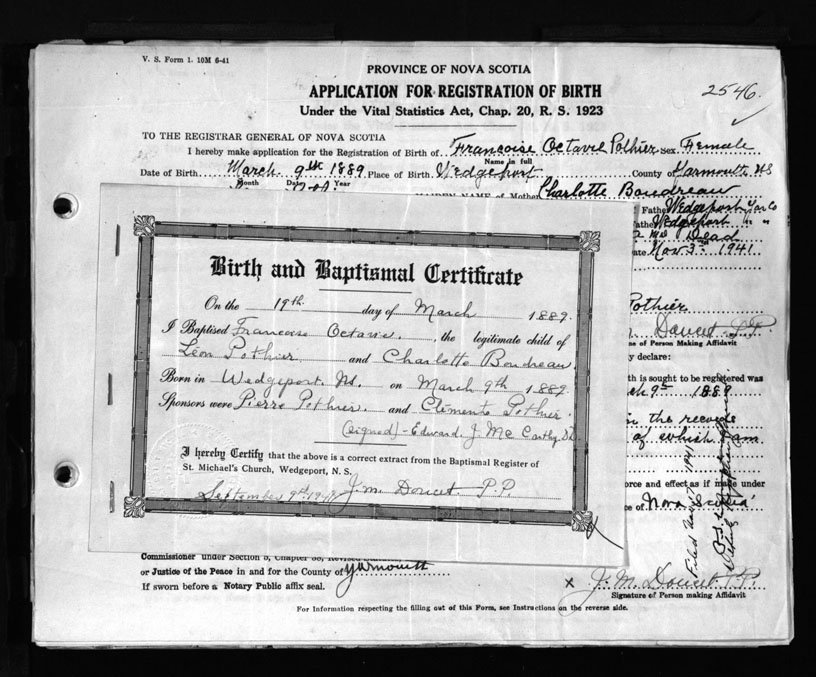 V. S. Form 1. 10M 6-41
PROVINCE OF NOVA SCOTIA
APPLICATION FOR REGISTRATION OF BIRTH
2546.
Under the Vital Statistics Act, Chap. 20, R. S. 1923
TO THE REGISTRAR GENERAL OF NOVA SCOTIA
I hereby make application for the Registration of Birth of Francoise Octavie Pothier Sex Female
Name in full
Date of Birth March 9th 1889 Place of Birth Wedgeport County of Yarmouth NS
Month Date Year
MAIDEN NAME of Mother Charlotte Boudreau
Father Wedgeport Yar Co
Father Wedgeport " "
Dead
Nov 3rd 1941
Birth and Baptismal Certificate
On the 19th day of March 1889.
I Baptised Francoise Octavie, the legitimate child of
Léon Pothier and Charlotte Boudreau
Born in Wedgeport, NS. on March 9th 1889
Sponsors were Pierre Pothier. and Clémente Pothier.
(signed) - Edward J. McCarthy
I hereby Certify that the above is a correct extract from the Baptismal Register of
St. Michael's Church, Wedgeport, N. S.
September 9th J. M. Doucet P.P.
Pothier
Doucet P.P.
me of Person Making Affidavit
ly declare:
th is sought to be registered was
ch 9th 1889
in the records
of which I am
orce and effect as if made under
ce of Nova Scotia
Filed 1941
Commissioner under Section 5, Chapter 38, Revised
or Justice of the Peace in and for the County of Yarmouth
If sworn before a Notary Public affix seal.
x J. M. Doucet P.P.
Signature of Person making Affidavit
For Information respecting the filling out of this Form, see Instructions on the reverse side.